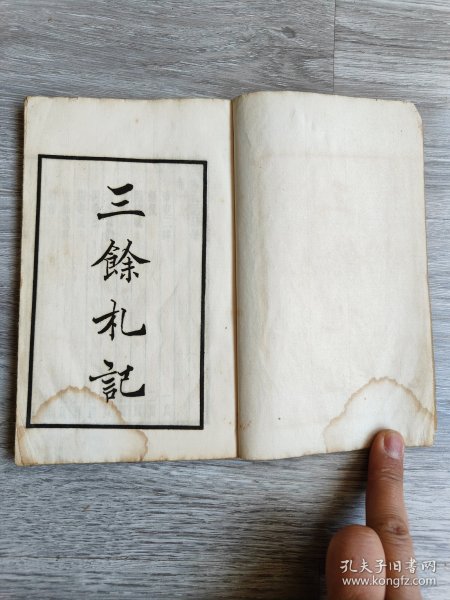 三餘札記
孔夫子旧书网
www.kongfz.com